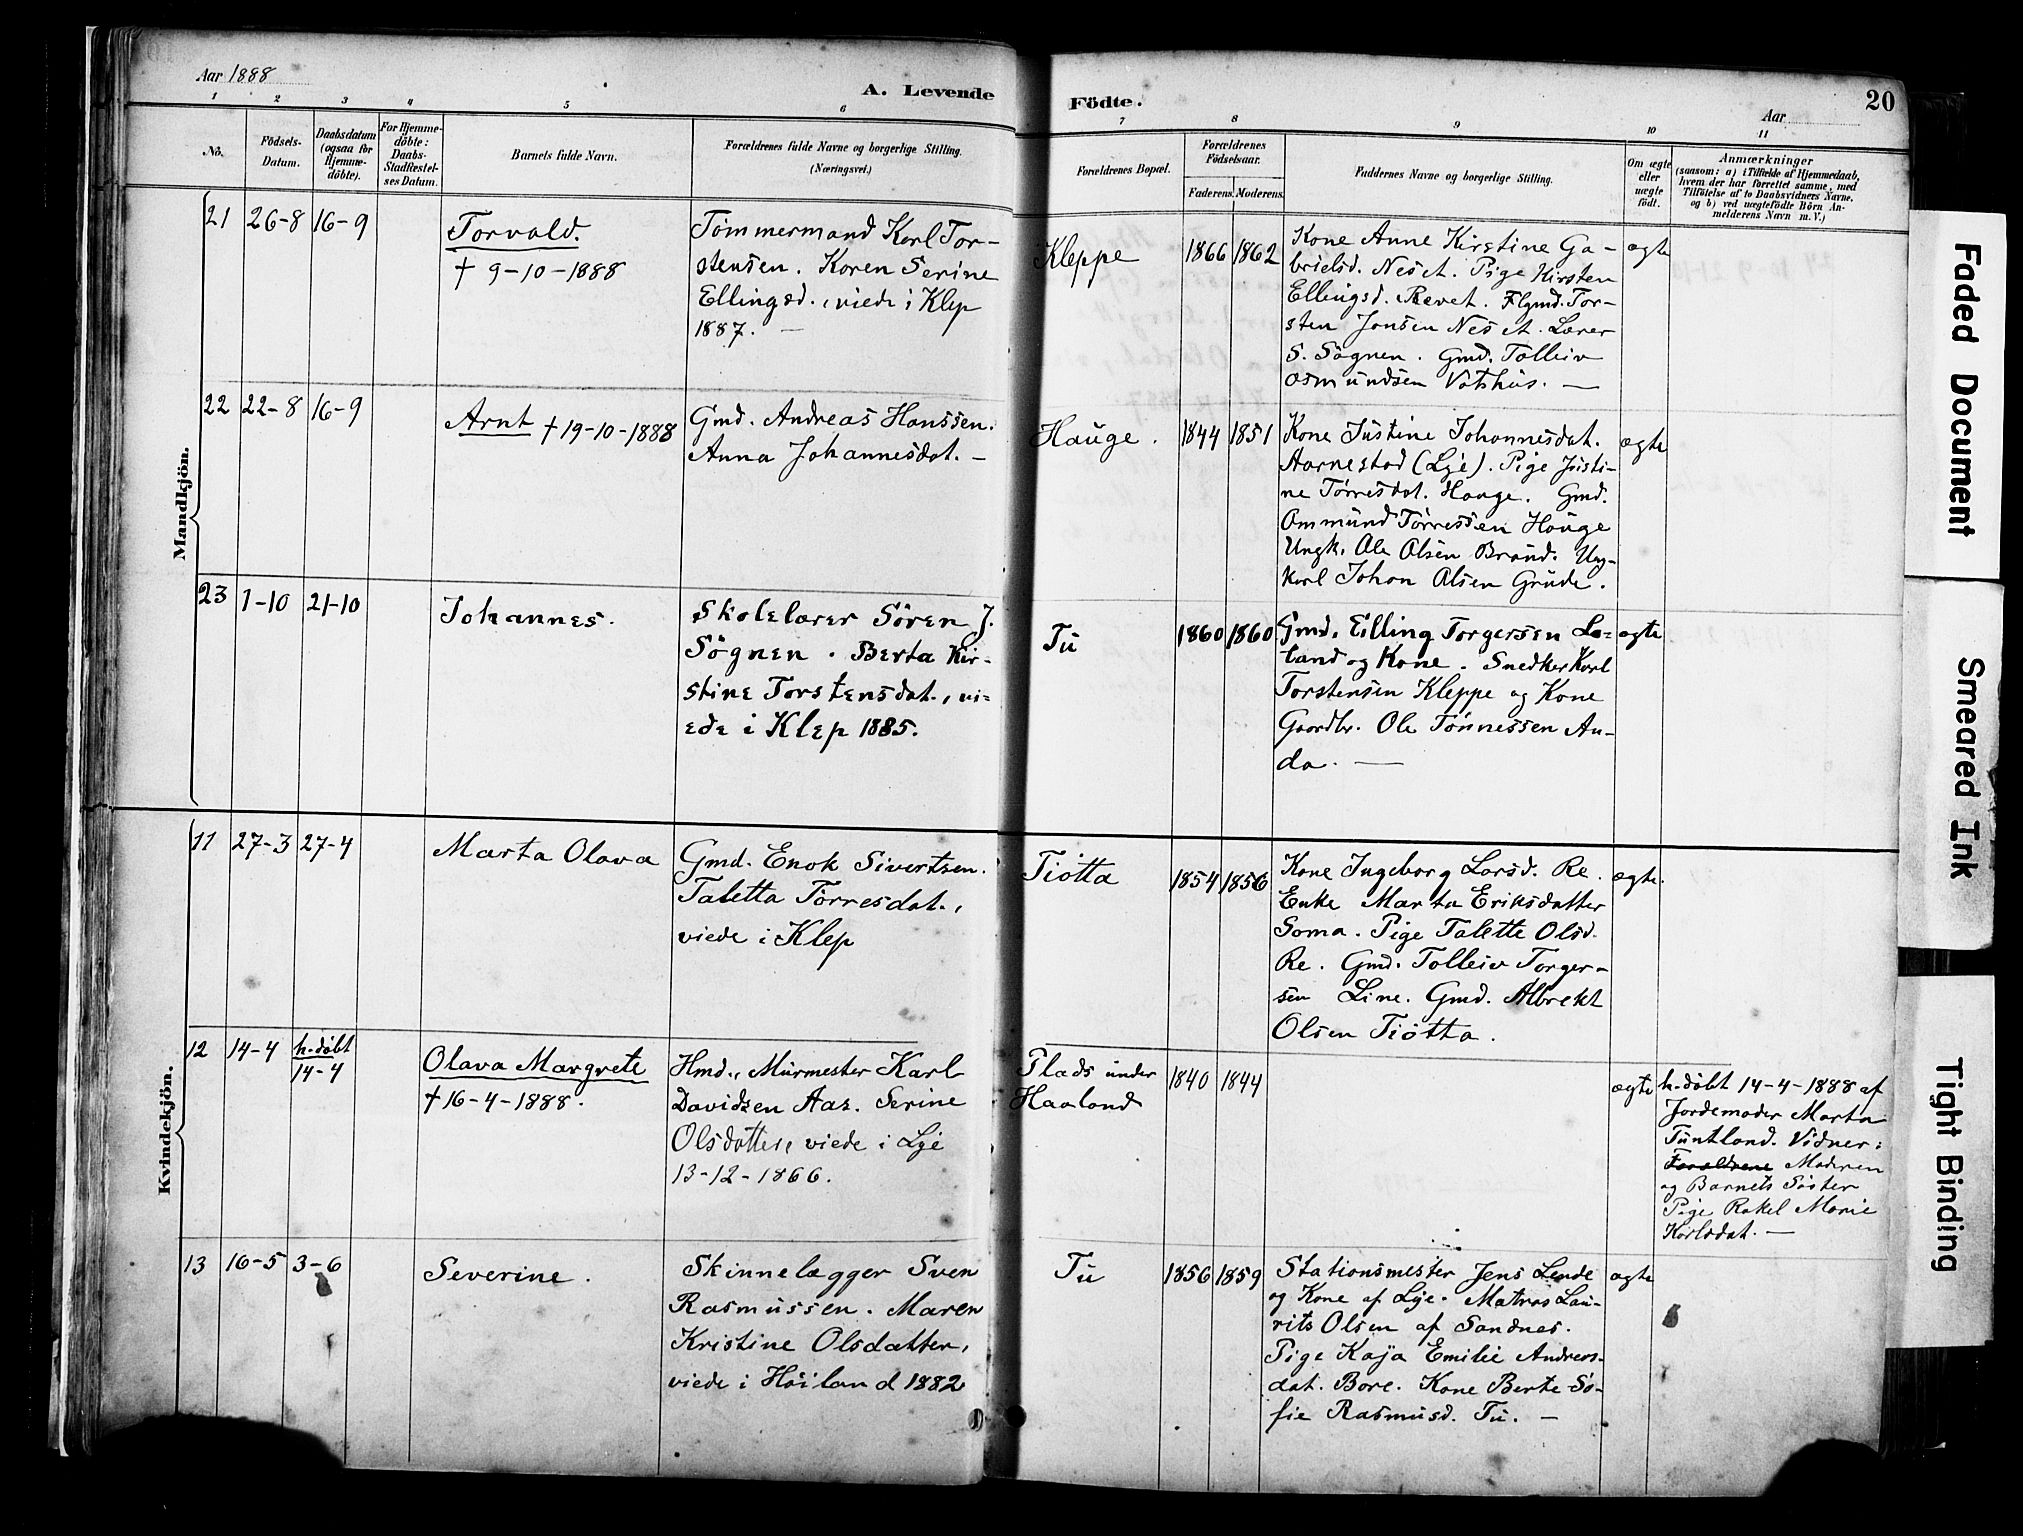 Aar 1888
A. Levende
Födte.
Aar
20
1 2 3 4 5 6 7 8 9 10 11
No.
Födsels-
Datum.
Daabsdatum
(ogsaa for
Hjemme-
döbte).
For Hjemme-
döbte:
Daabs-
Stadfæstel-
ses Datum.
Barnets fulde Navn.
Forældrenes fulde Navne og borgerlige Stilling.
(Næringsvei.)
Forældrenes Bopæl.
Forældrenes
Födselsaar.
Faderens. Moderens.
Faddernes Navne og borgerlige Stilling.
Om ægte
eller
uægte
født.
Anmærkninger
(saasom: a) i Tilfælde af Hjemmedaab,
hvem der har forrettet samme, med
Tilföielse af to Daabsvidners Navne,
og b) ved uægtefödte Börn An-
melderens Navn m. V.)
Mandkjön.
21 26-8 16-9
Torvald.
† 9-10-1888
Tömmermand Karl Tor-
stensen. Karen Serine
Ellingsd., viede i Klep
1887. —
Kleppe
1866 1862
Kone Anne Kirstine Ga-
brielsd. Neset. Pige Kirsten
Ellingsd. Revet. Flgmd. Tor-
sten Jonsen Neset. Lærer
S. Sögnen. Gmd. Tolleiv
Osmundsen Vatshus. —
ægte
22 22-8 16-9
Arnt † 19-10-1888
Gmd. Andreas Hanssen.
Anna Johannesdat. —
Hauge.
1844 1851
Kone Justine Johannesdat.
Aarnestad (Lye). Pige Justi-
ne Törresdat. Hauge. Gmd.
Ommund Törressen Hauge
Ungk. Ole Olsen Braud. Ung-
karl Johan Olsen Grude.
ægte
23 1-10 21-10
Johannes.
Skolelærer Sören J.
Sögnen. Berta Kir-
stine Torstensdat., vi-
ede i Klep 1885.
Tu
1860 1860
Gmd. Elling Torgersen La-
land og Kone. Snedker Karl
Torstensen Kleppe og Kone
Gaardbr. Ole Tönnessen An-
da. —
ægte
Kvindekjön.
11 27-3 27-4
Marta Olava
Gmd. Enok Sivertsen.
Taletta Törresdat.,
viede i Klep
Tiötta
1854 1856
Kone Ingeborg Larsd. Re.
Enke Marta Eriksdatter
Soma. Pige Talette Olsd.
Re. Gmd. Tolleiv Torger-
sen Line. Gmd. Albrekt
Olsen Tiötta.
ægte.
12 14-4 h-döbt
14-4
Olava Margrete
† 16-4-1888.
Hmd., Murmester Karl
Davidsen Aas. Serine
Olsdatter, viede i Lye
13-12-1866.
Plads under
Haaland
1840 1844
ægte
h-döbt 14-4-1888 af
Jordemoder Marta
Tuntland. Vidner:
Forældrene Moderen
og Barnets Söster
Pige Rakel Marie
Karlsdat. —
13 16-5 3-6
Severine.
Skinnelægger Sven
Rasmussen. Maren
Kristine Olsdatter,
viede i Höiland 1882
Tu
1856 1859
Stationsmester Jens Lende
og Kone af Lye. Matros Lau-
rits Olsen af Sandnes.
Pige Kaja Emilie Andreas-
dat. Bore. Kone Berte So-
fie Rasmusd. Tu. —
ægte
Faded Document
Smeared Ink
Tight Binding